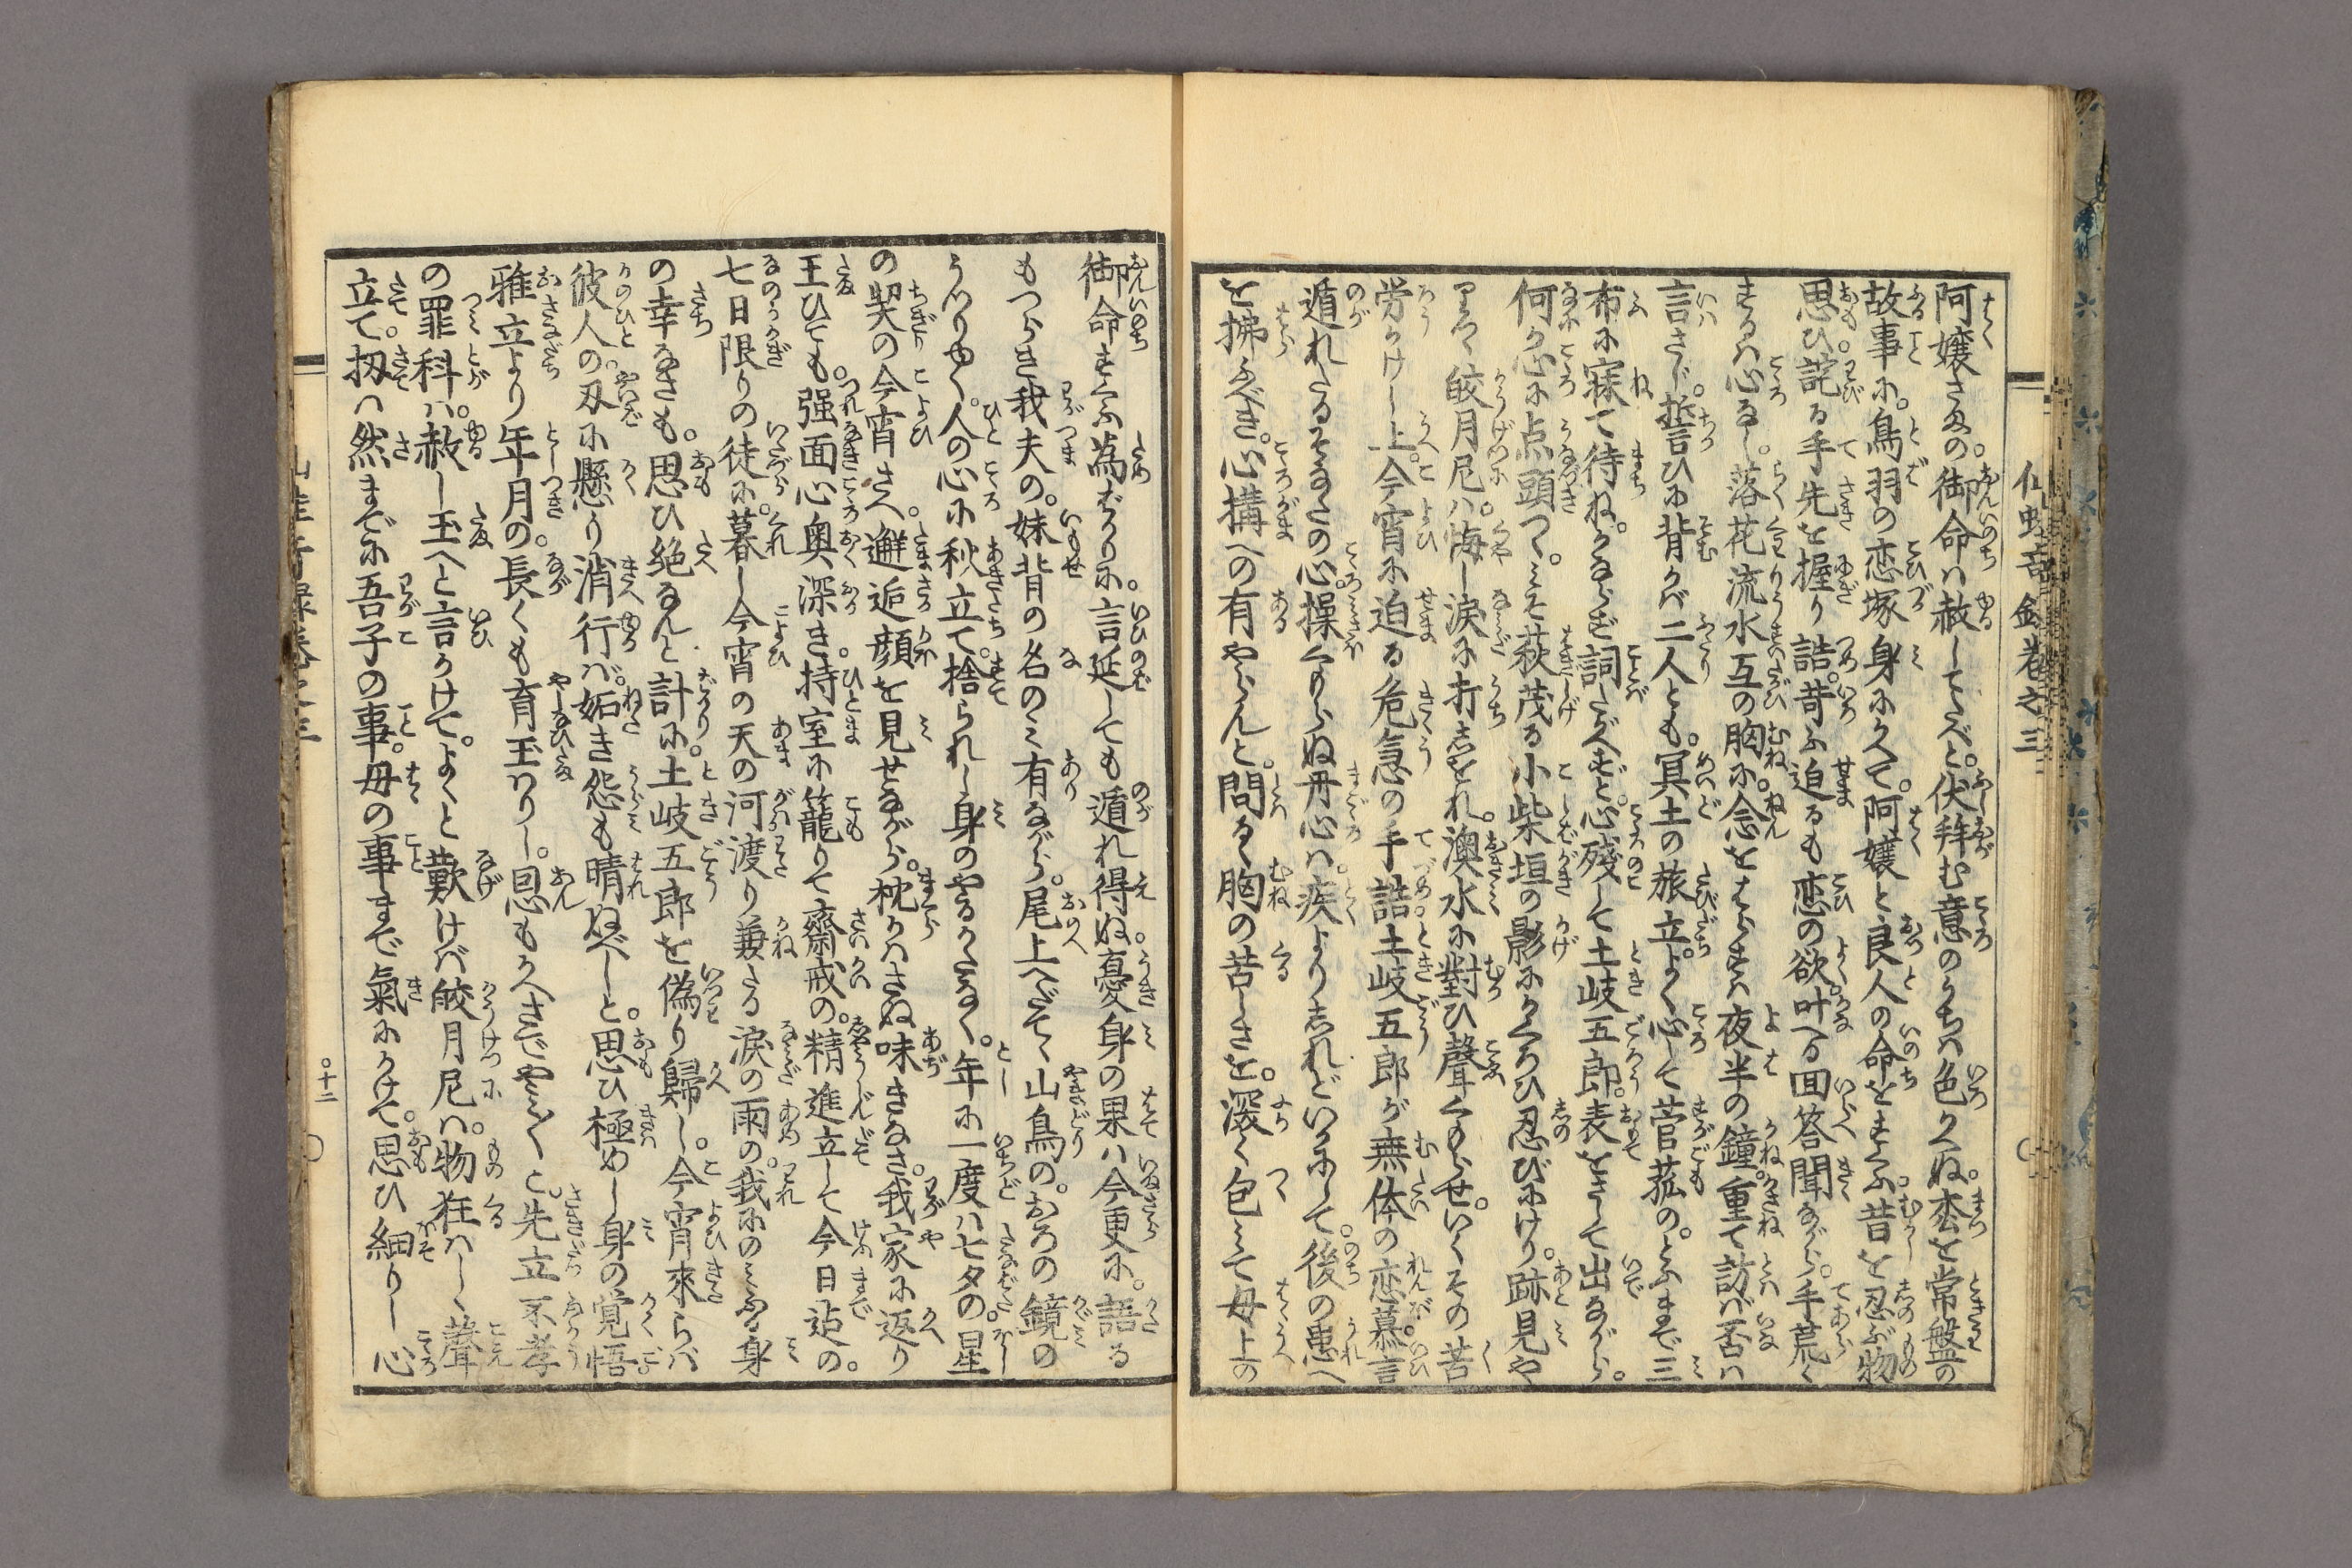 阿嬢さまの。御命ハ赦してたべと。伏拝む意のうちハ色かへぬ。松を常盤の
故事に。鳥羽の恋塚身にかへて。阿嬢と良人の命をすくふ。昔を忍ぶ物
思ひ。詫る手先を握り詰。苛ふ迫るも恋の欲。叶へる回答聞ながら。手荒く
するハ心なし。落花流水互の胸に。念をはらすハ夜半の鐘。重て訪バ否ハ
言さじ。誓ひに背かバ二人とも。冥土の旅立よく心して菅菰の。とふまで三
布に寐て待ね。かならず詞たがへずと。心残して土岐五郎。表をさして出ながら。
何か心に点頭つゝ。こそ萩茂る小柴垣の影にかくろひ忍びにけり。跡見や
りつゝ皎月尼ハ。悔し涙に打しをれ。澳水に對ひ聲くもらせ。いくその苦
労かけし上。今宵に迫る危急の手詰。土岐五郎が無体の恋慕。言
遁れたるそなたの心。操くもらぬ丹心ハ。疾よりしれどいかにして。後の患へ
を拂ふべき。心構への有やらんと。問るゝ胸の苦しさを。深く包ミて母上の
仙蛙奇録巻之三
御命すくふ為ばかりに。言延しても遁れ得ぬ。憂身の果ハ今更に。語る
もつらき我夫の。妹背の名のミ有ながら。尾上へだてゝ山鳥の。おろの鏡の
うつりゆく。人の心に秋立て。捨られし身のやるかたなく。年に一度ハ七夕の。星
の契の今宵さへ。邂逅顔を見せながら。枕かハさぬ味きなさ。我家に返り
玉ひても。强面心奥深き。持室に籠りて齋戒の。精進立して今日迠の。
七日限りの徒に。暮し今宵の天の河渡り兼たる涙の雨の。我にのミふる身
の幸なさも。思ひ絶なんと計に。土岐五郎を偽り歸し。今宵來らバ
彼人の。刄に懸り消行バ。妬き怨も晴ぬべしと。思ひ極めし身の覚悟
雅立より年月の。長くも育玉ハりし。恩もかへさでやミ〱と。先立不孝
の罪科ハ。赦し玉へと言かけて。よゝと歎けバ皎月尼ハ。物狂ハしく聲
立て。扨ハ然まで に吾子の事。母の事まで氣にかけて。思ひ細りし心
十二